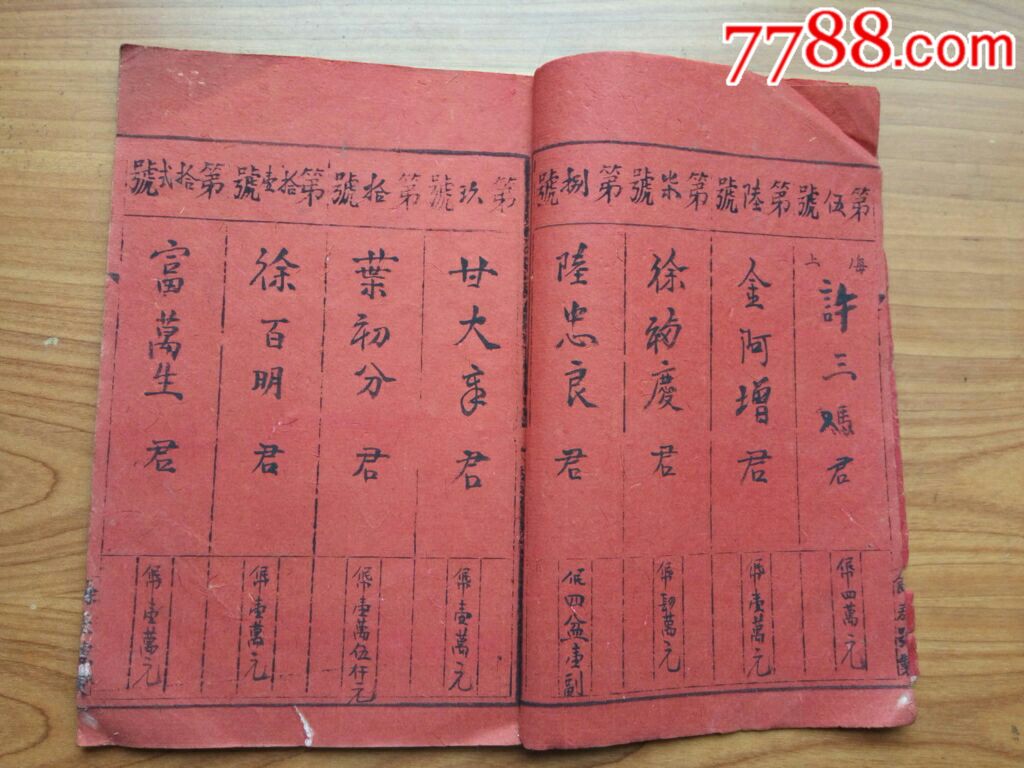 7788.com
第伍號
上海
許三媽君
保四萬元
第陸號
金阿增君
保壹萬元
第柒號
徐初慶君
保肆萬元
第捌號
陸忠良君
保四盆壹副
第玖號
甘大年君
保壹萬元
第拾號
葉初分君
保壹萬伍仟元
第拾壹號
徐百明君
保壹萬元
第拾弍號
富萬生君
保壹萬元